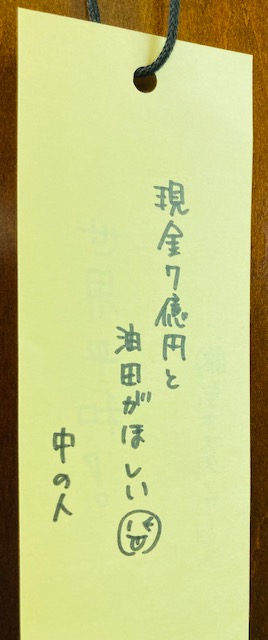 現金7億円と
油田がほしい
中の人